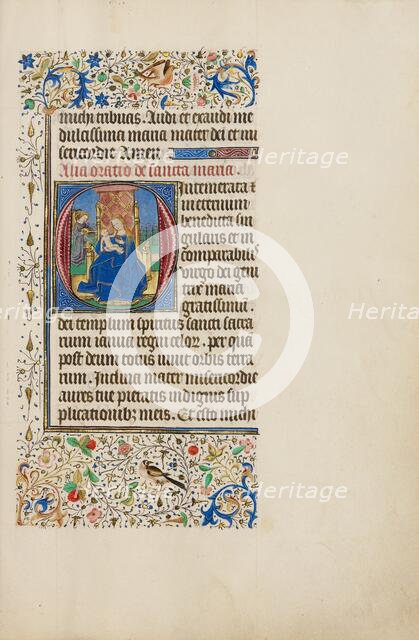 michi tribuas. Audi et exaudi me
dulcissima maria mater dei et mi
sericordie Amen
Alia oratio de sancta maria.
O intemerata et
in eternum
benedicta sin
gularis et in
comparabilis
virgo dei geni
trix maria
gratissimum
dei templum spiritus sancti sacra
rium ianua regni celor. per quam
post deum totus vivit orbis terra
rum. Inclina mater misericordie
aures tue pietatis indignis sup
plicationib3 meis. Et esto michi
Heritage
Heritage
Heritage
Heritage
Heritage
Heritage